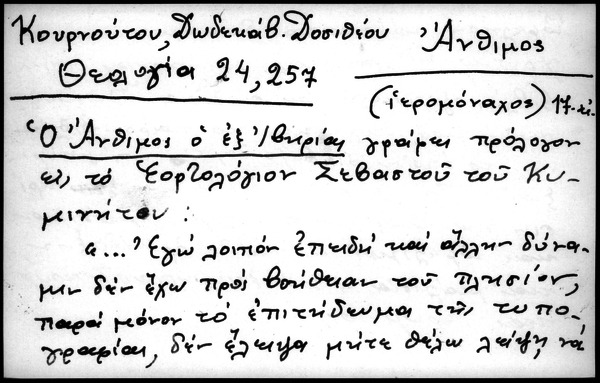 Κουρνούτου, Δωδεκάβ. Δοσιθέου
Θεολογία 24, 257
Ἄνθιμος
(ἱερομόναχος) 17
Ὁ Ἄνθιμος ὁ ἐξ Ἰβηρίας γράφει πρόλογον
εἰς τὸ Ἑορτολόγιον Σεβαστοῦ τοῦ Κυ-
μινήτου :
«...Ἐγὼ λοιπὸν ἐπειδὴ καὶ ἄλλην δύνα-
μιν δὲν ἔχω πρὸς βοήθειαν τοῦ πλησίον,
παρὰ μόνον τὸ ἐπιτήδευμα τῆς τυπο-
γραφίας, δὲν ἔλειψα μήτε θέλω λείψῃ, νὰ